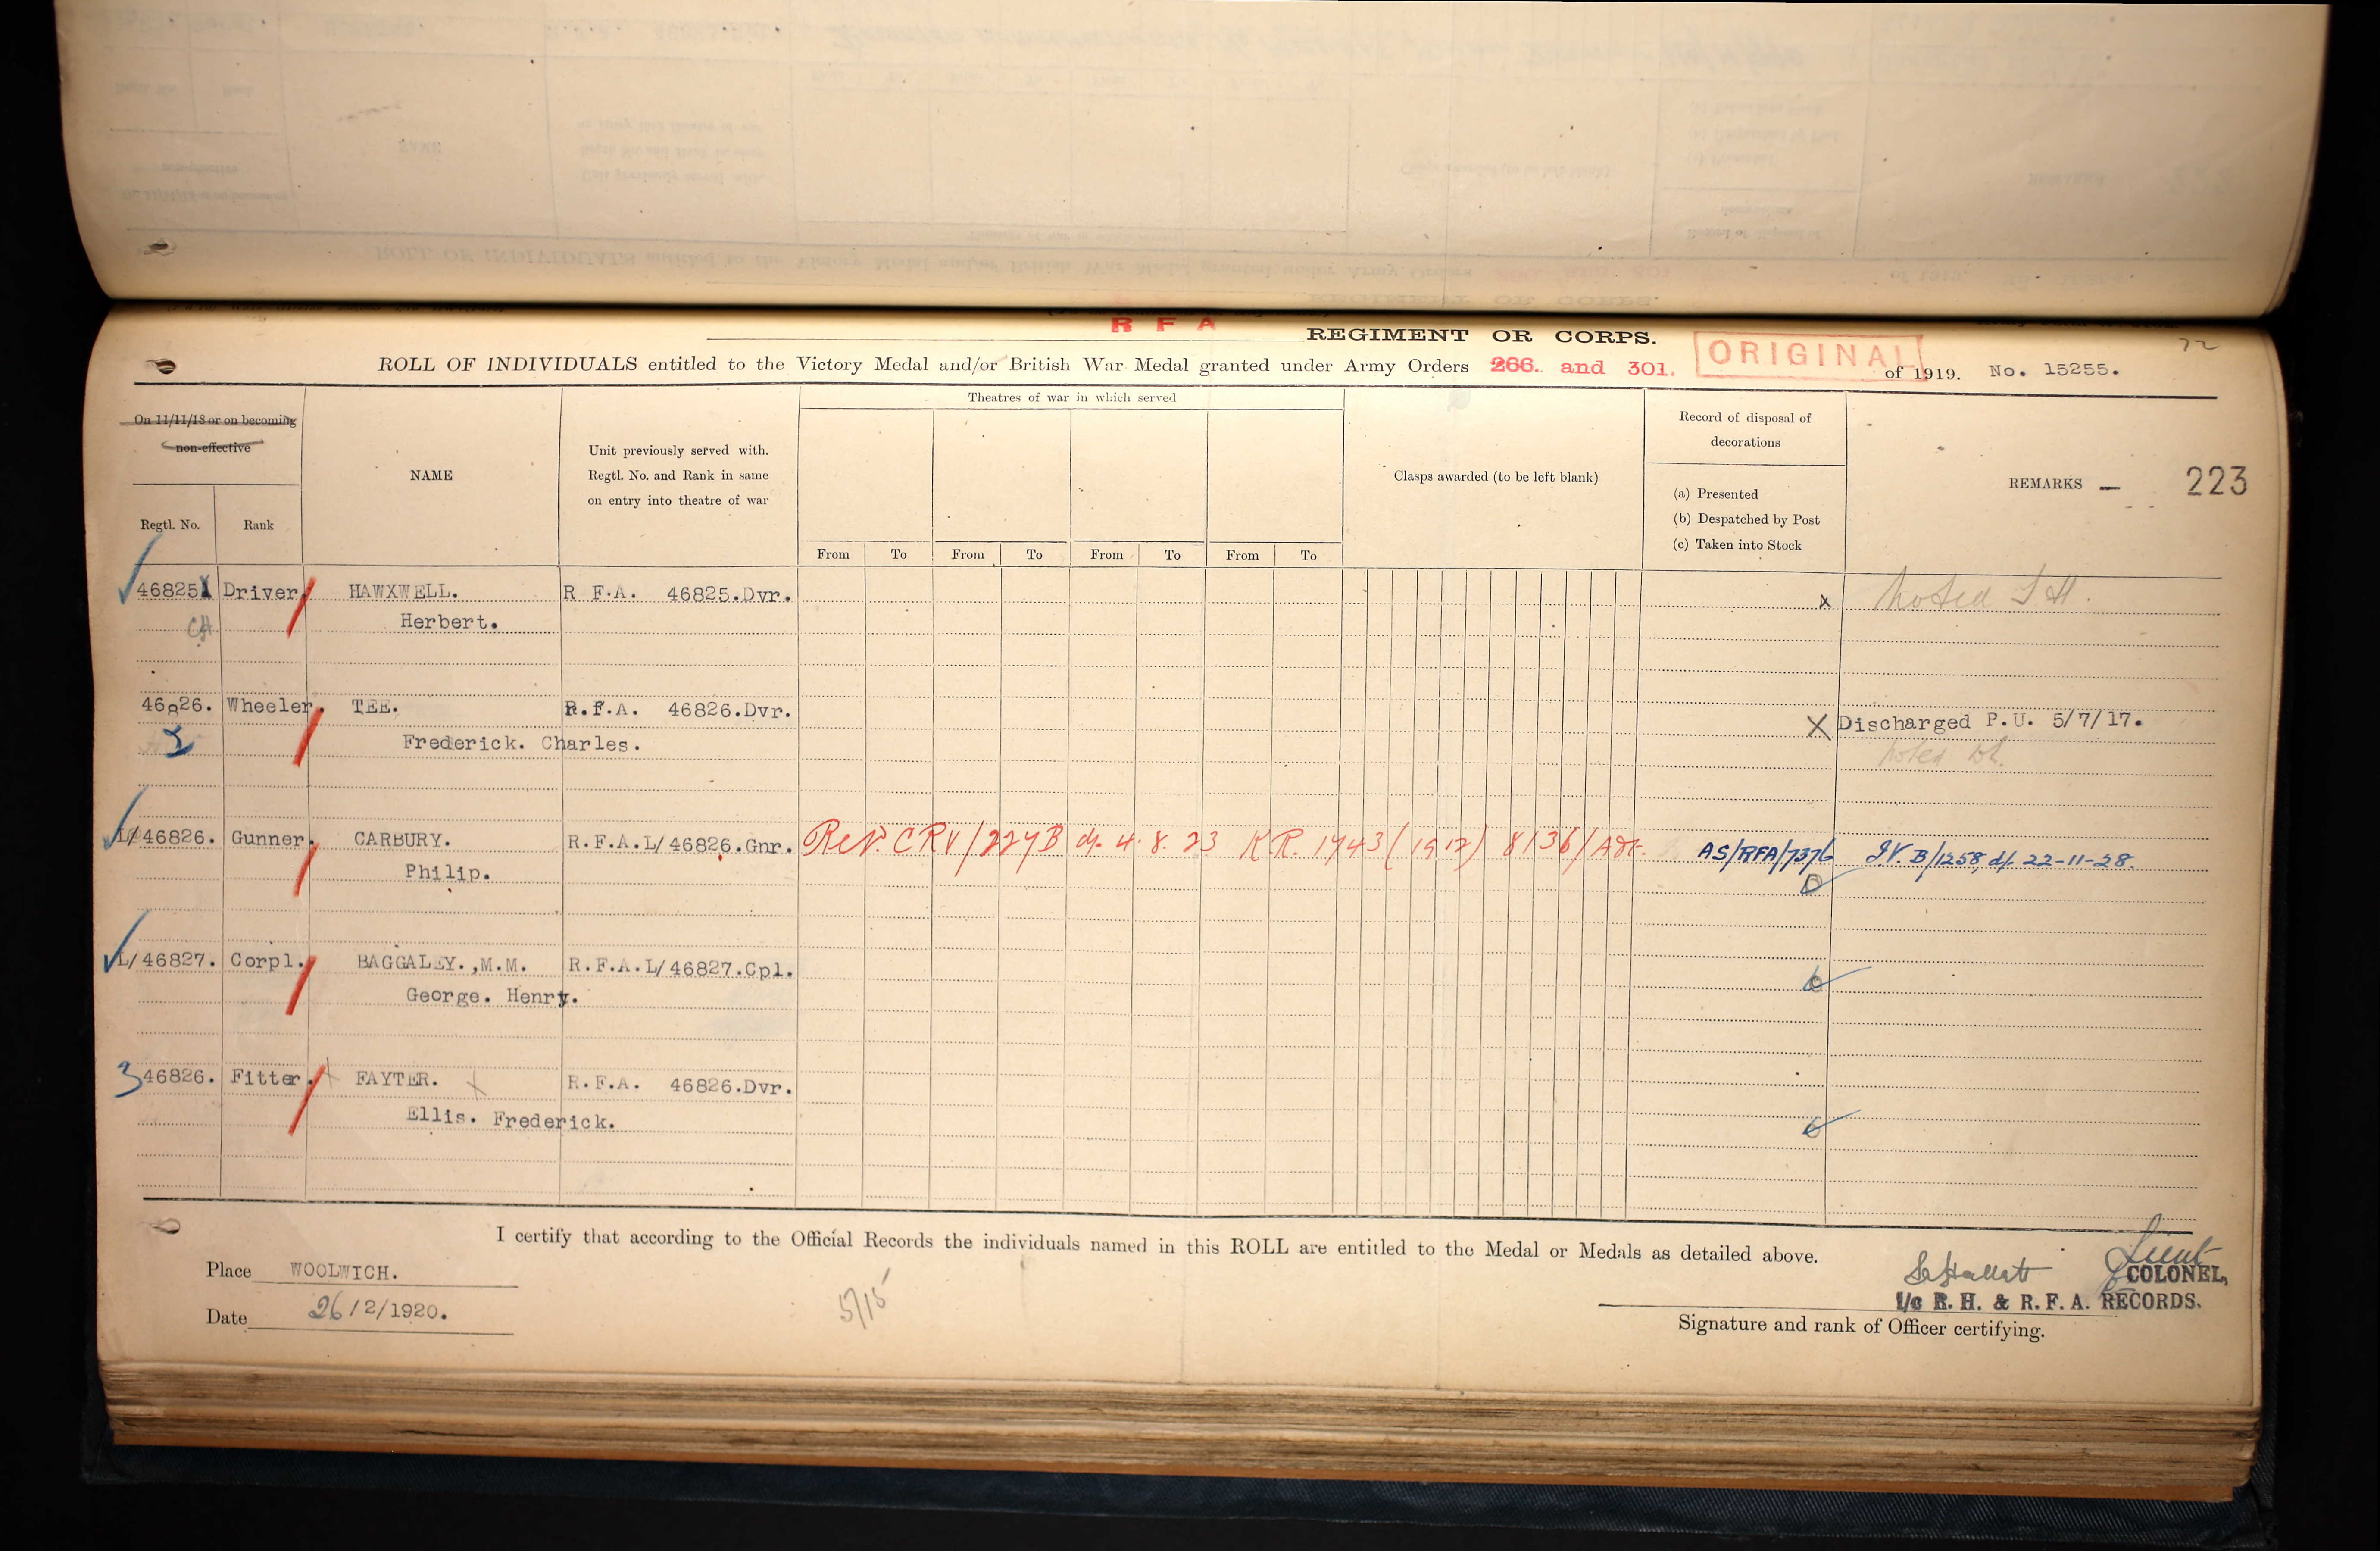 R F A REGIMENT OR CORPS.
ROLL OF INDIVIDUALS entitled to the Victory Medal and/or British War Medal granted under Army Orders 266. and 301. ORIGINAL of 1919. No. 15255.
223
On 11/11/18 or on becoming
non-effective
Regtl. No. Rank
NAME
Unit previously served with.
Regtl. No. and Rank in same
on entry into theatre of war
Theatres of war in which served
From To From To From To From To
Clasps awarded (to be left blank)
Record of disposal of
decorations
(a) Presented
(b) Despatched by Post
(c) Taken into Stock
REMARKS
46825 Driver HAWXWELL. R F.A. 46825.Dvr. x Noted
Herbert.
46826. Wheeler. TEE. R.F.A. 46826.Dvr. X Discharged P.U. 5/7/17.
3 Frederick. Charles. Noted
L/46826. Gunner. CARBURY. R.F.A.L/46826.Gnr. Ret. CRV/227B d/. 4.8.23 KR. 1743(1912) 8136/Adt. AS/RFA/7376 IV. B/1258 d/. 22-11-28.
Philip.
L/46827. Corpl. BAGGALEY.,M.M. R.F.A.L/46827.Cpl.
George. Henry. b
3 46826. Fitter. FAYTER. R.F.A. 46826.Dvr.
Ellis. Frederick. b
I certify that according to the Official Records the individuals named in this ROLL are entitled to the Medal or Medals as detailed above.
Place WOOLWICH.
Date 26/2/1920.
5/15
Lieut
COLONEL,
I/c R. H. & R. F. A. RECORDS.
Signature and rank of Officer certifying.